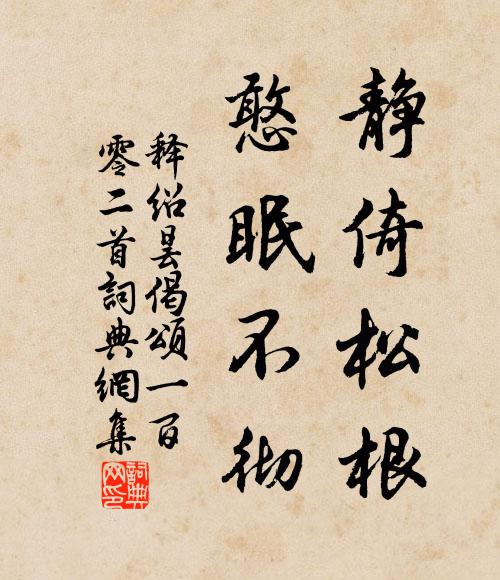 静倚松根
憨眠不彻
释绍昙偈颂一百
零二首詞典網集
詞典网印